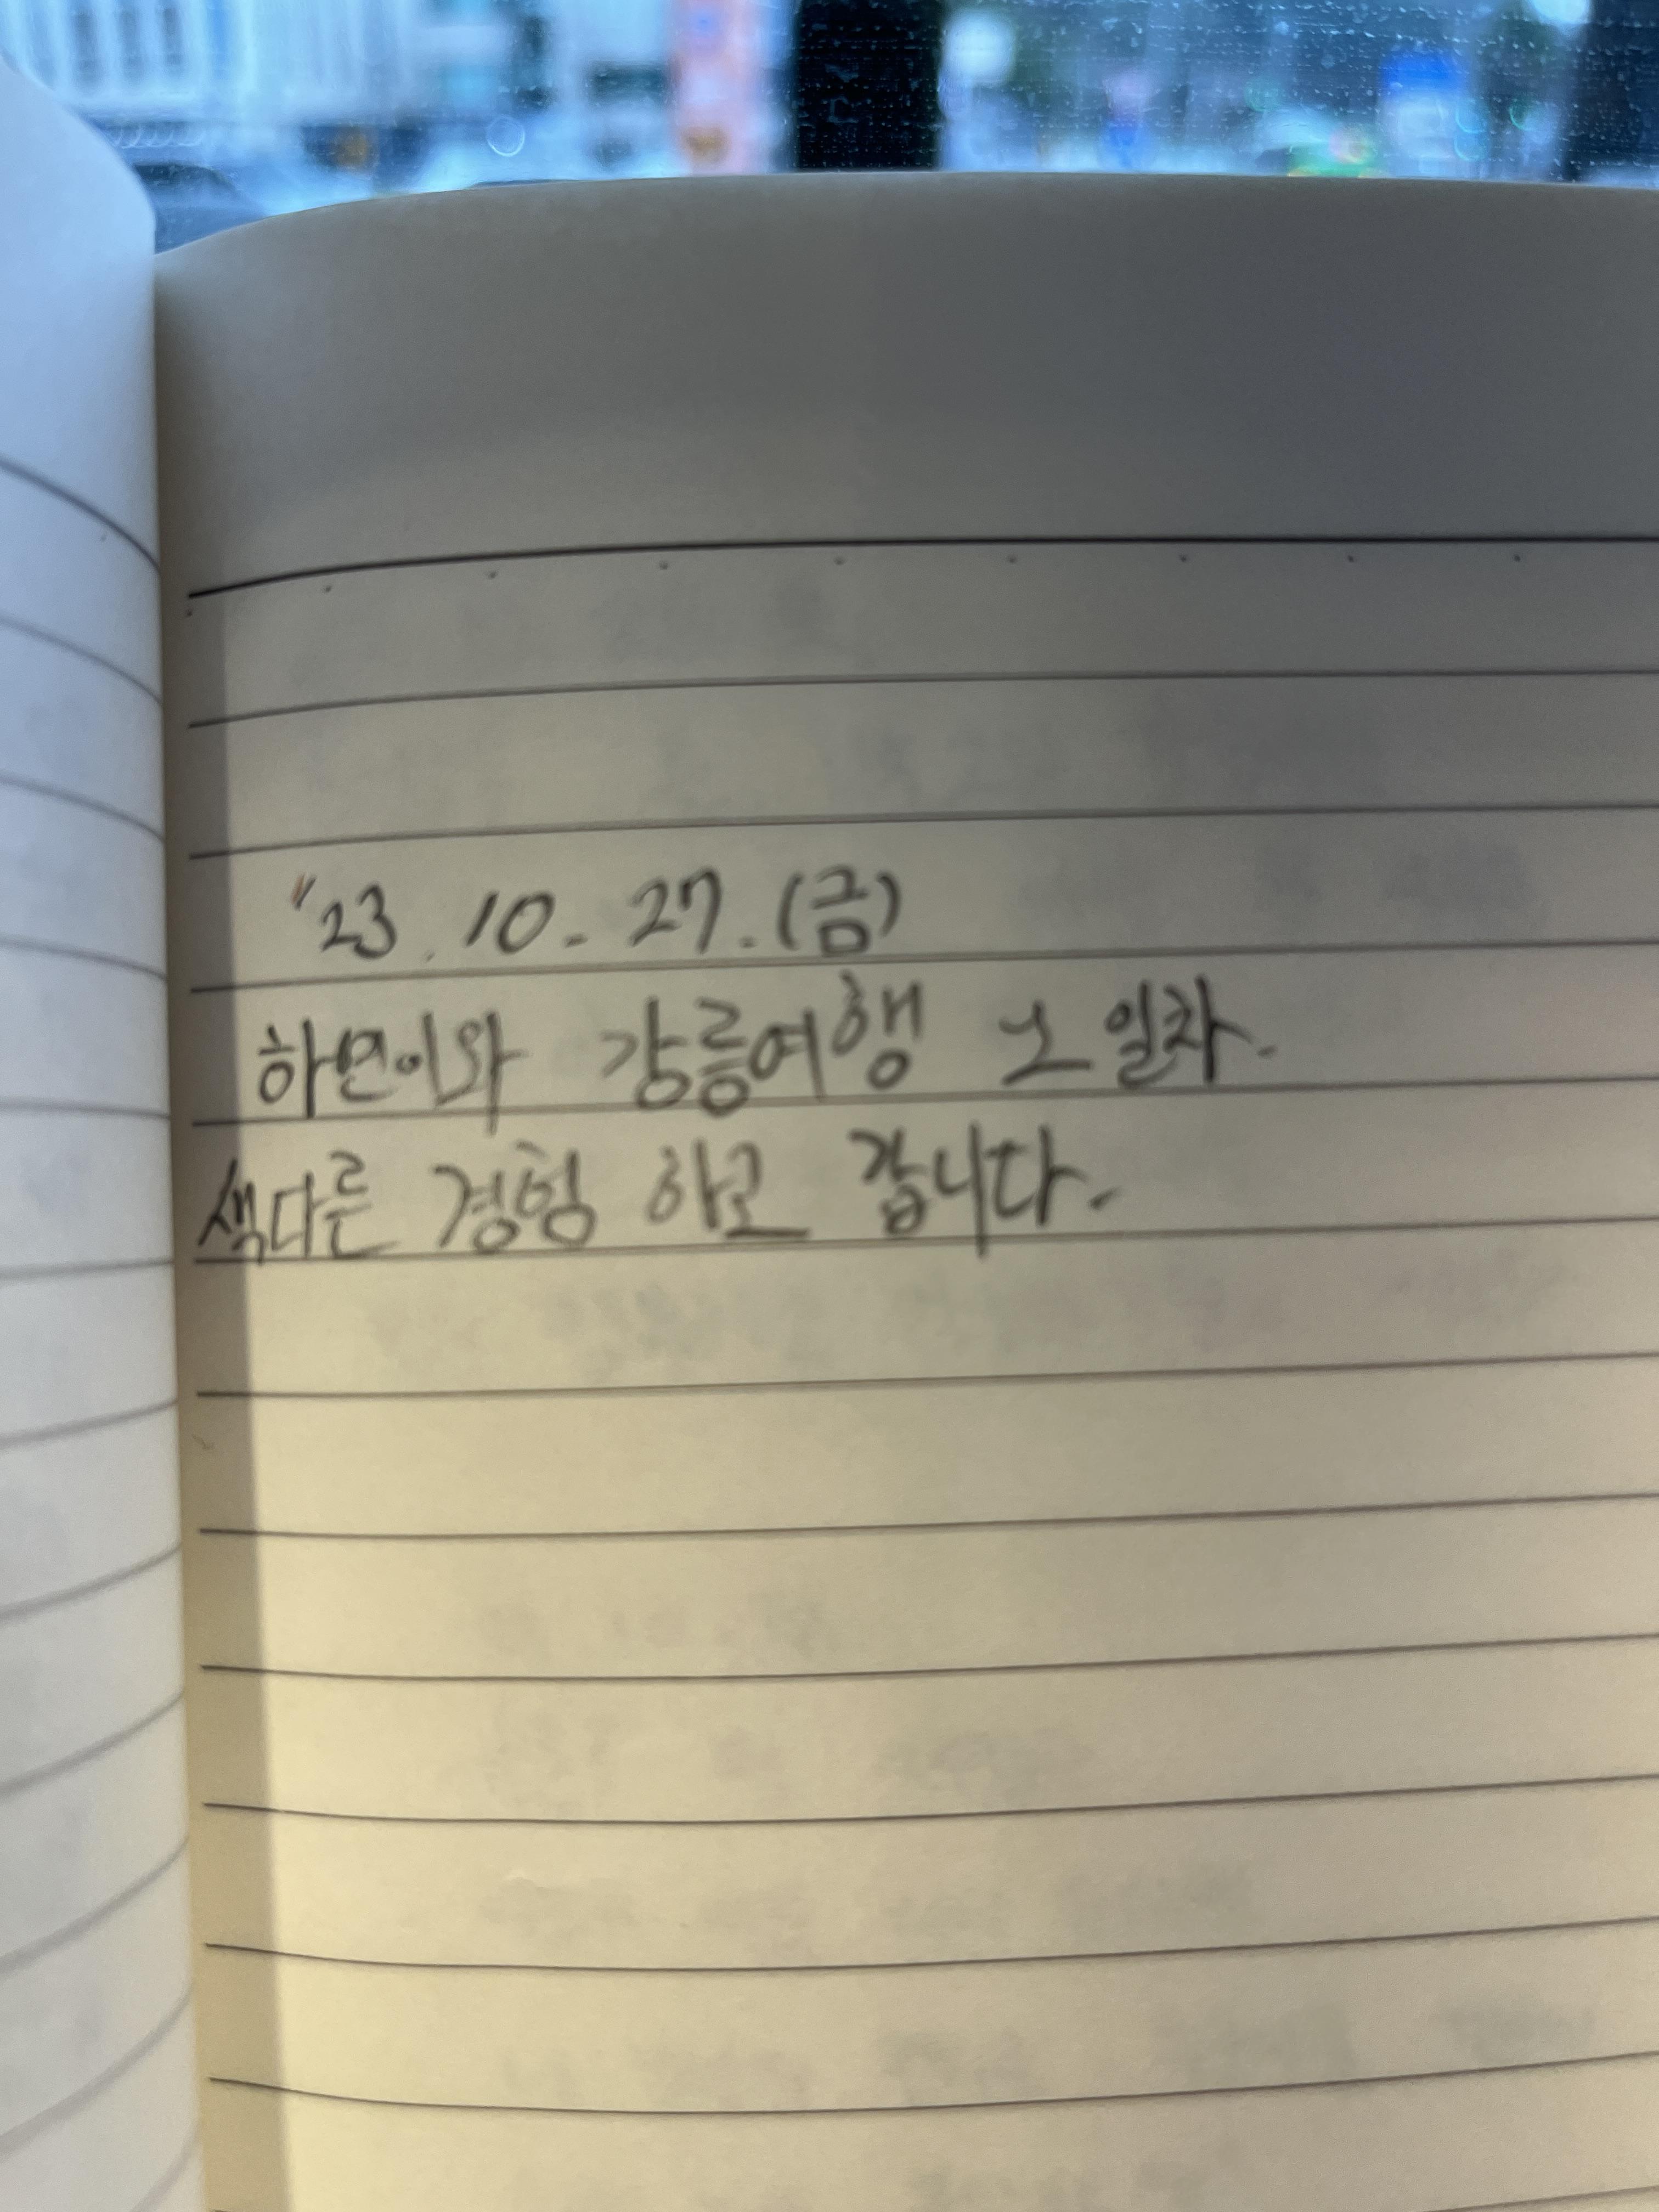 '23. 10. 27. (금)
하연이와 강릉여행 1일차.
색다른 경험 하고 갑니다.